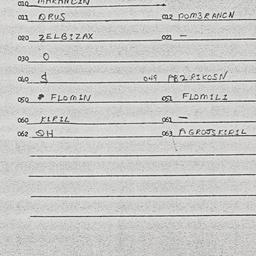 010 MARANCIN
011 QRUS 012 POM3RANCN
020 ZELBIZAX 021 —
030 O
040 $ 049 PB2RIKOSN
050 FLOMIN 051 FLOMILI
060 KIRIL 061 —
062 QH 063 AGROTSKIRIL